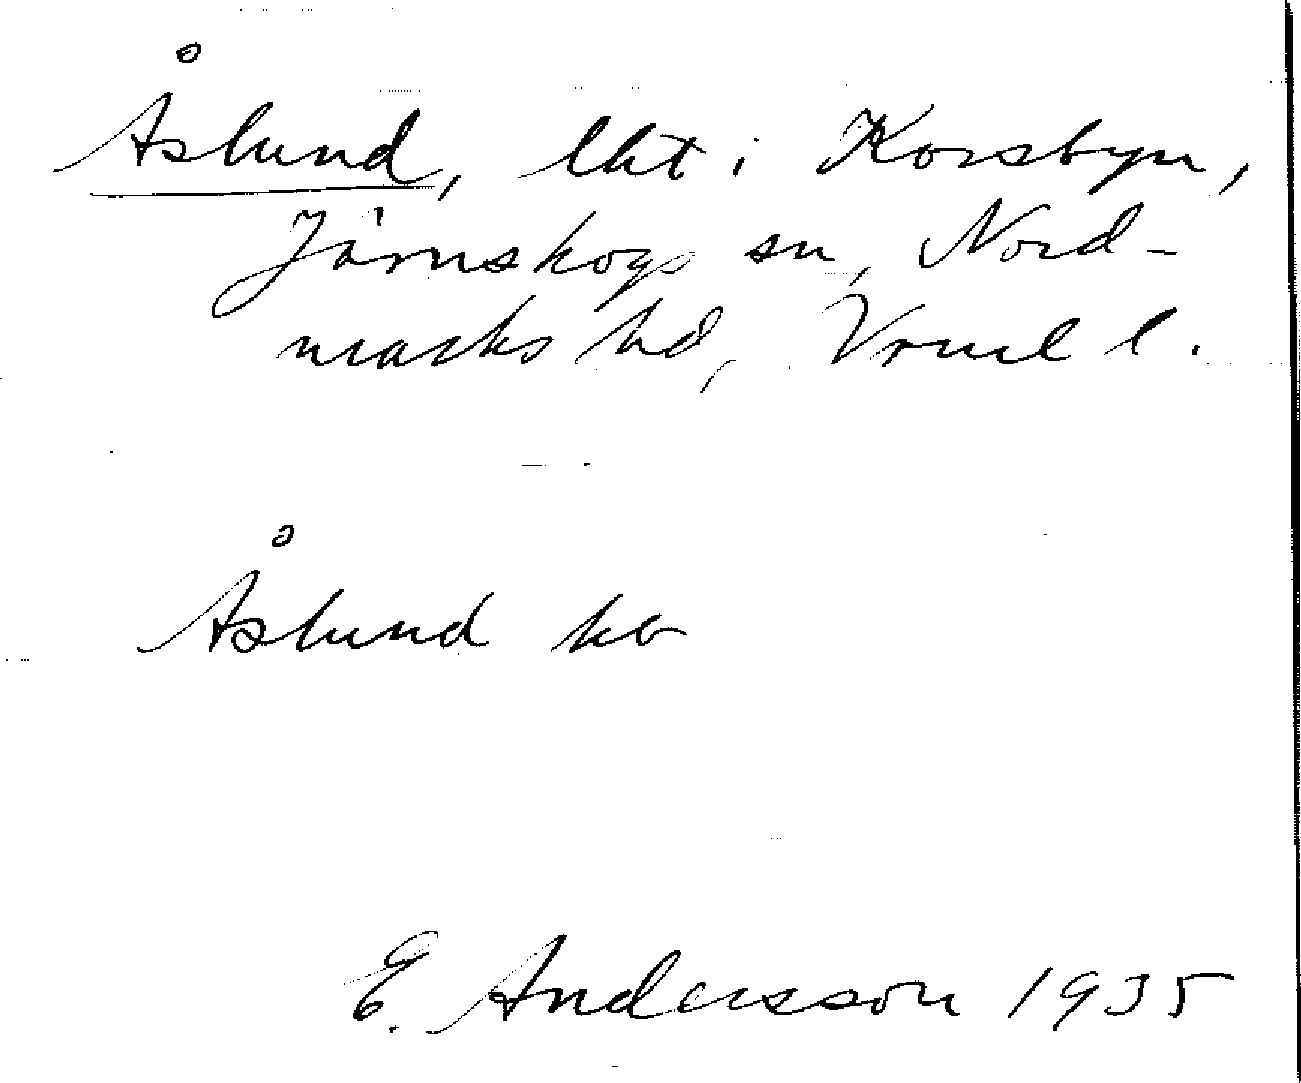 Åslund, lht i Korsbyn,
Järnskogs sn, Nord-
marks hd, Vrml l.
Åslund ko
E. Andersson 1935